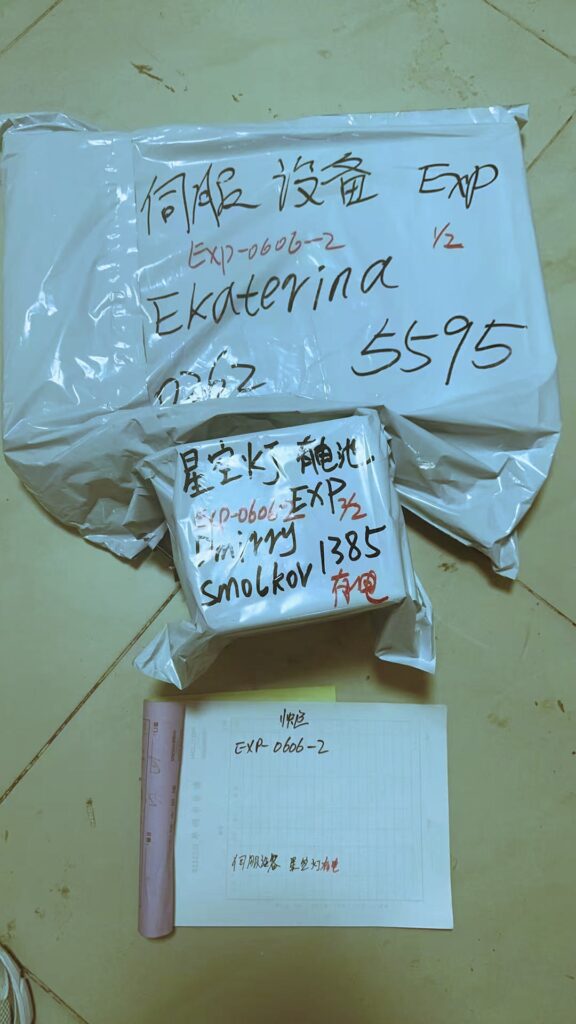 伺服 设备 EXP
EXP-0606-2 1/2
Ekaterina
5595
0262
星空灯 有电池
EXP-0606-2 EXP 2/2
Dmirry
smolkov 1385
有电
快运
EXP-0606-2
伺服设备 星空灯有电